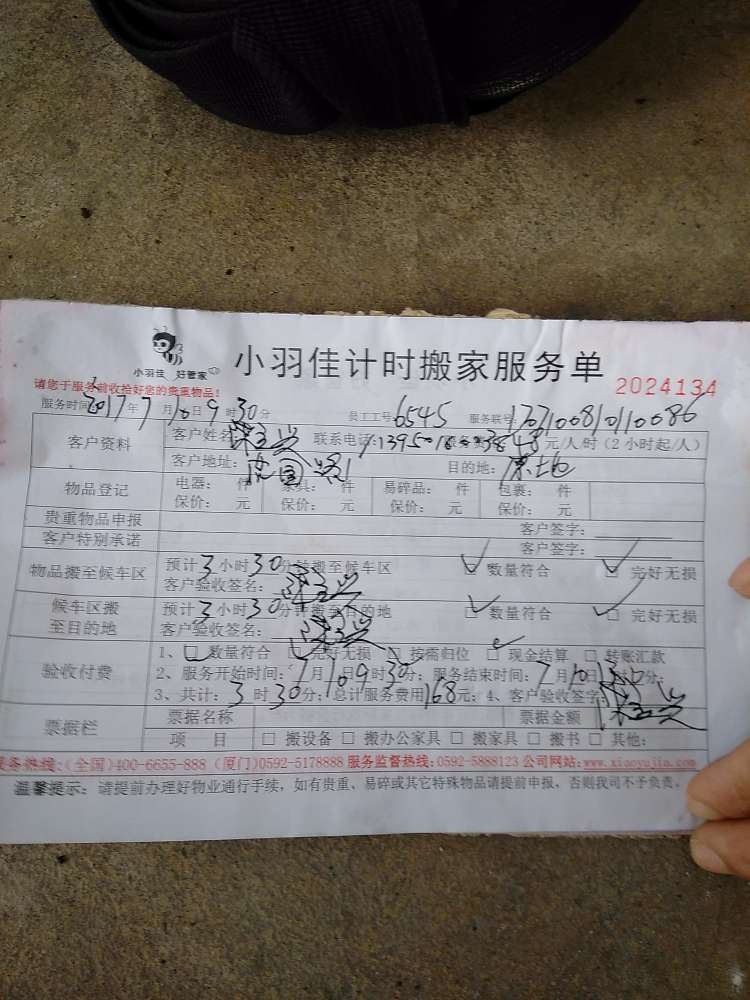 小羽佳 好管家
小羽佳计时搬家服务单
2024134
请您于服务前收拾好您的贵重物品!
服务时间: 2017年7月10日9时30分 员工工号: 6545 服务联号:
客户资料 客户姓名: 联系电话: 48元/人/时(2小时起/人)
客户地址: 目的地: 原地
物品登记 电器: 件 家具: 件 易碎品: 件 包裹: 件
保价: 元 保价: 元 保价: 元 保价: 元
贵重物品申报 客户签字:
客户特别承诺 客户签字:
物品搬至候车区 预计3小时30分钟搬至候车区 数量符合 完好无损
客户验收签名:
候车区搬至目的地 预计3小时30分钟搬至目的地 数量符合 完好无损
客户验收签名:
验收付费 1、 数量符合 完好无损 按需归位 现金结算 转账汇款
2、服务开始时间: 7月10日9时30分; 服务结束时间: 7月10日
3、共计: 3时30分; 总计服务费用168元; 4、客户验收签字
票据栏 票据名称 票据金额
项 目 搬设备 搬办公家具 搬家具 搬书 其他:
服务热线:(全国)400-6655-888 (厦门)0592-5178888 服务监督热线:0592-5888123 公司网站:www.xiaoyujia.com
温馨提示: 请提前办理好物业通行手续, 如有贵重、易碎或其它特殊物品请提前申报, 否则我司不予负责。